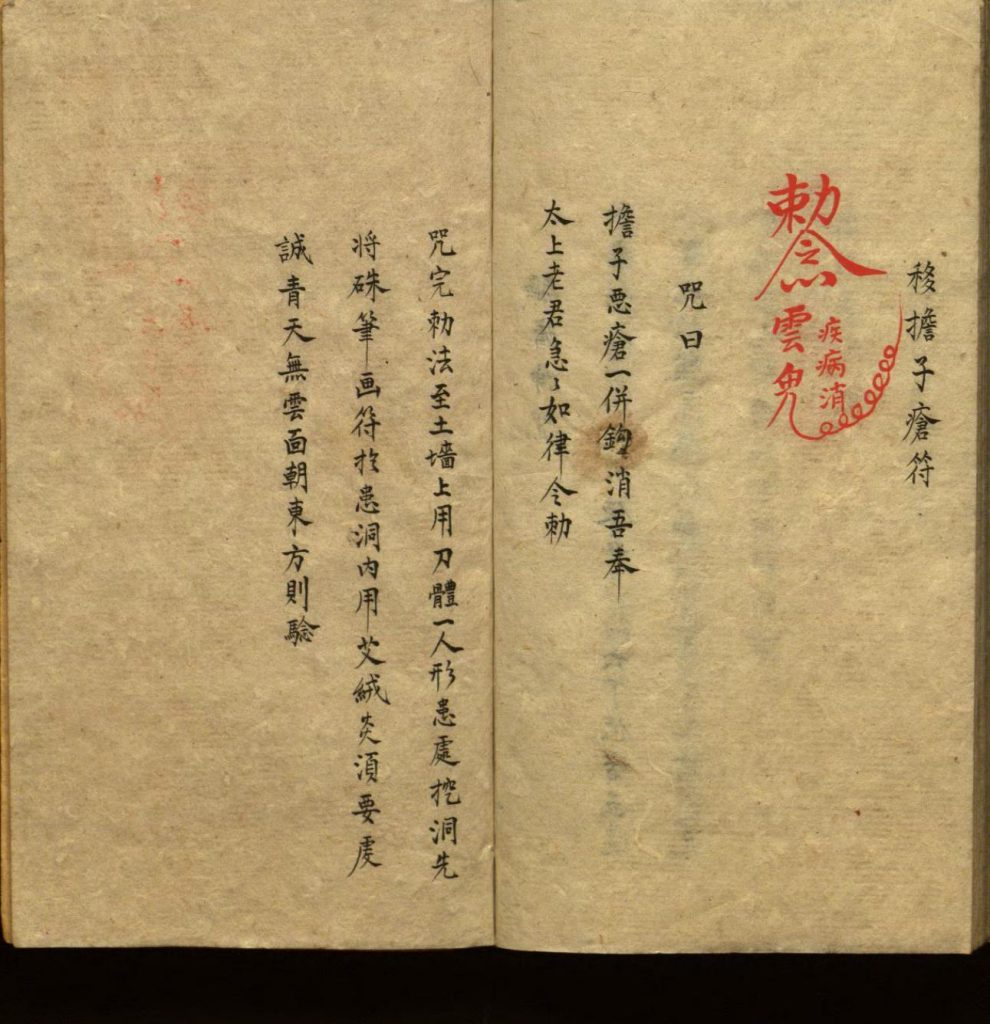 移擔子瘡符
勅令
雲
疾病消
咒曰
擔子惡瘡一併鈎消吾奉
太上老君急〻如律令勅
咒完勅法至土墻上用刀體一人形患處挖洞先
将硃筆画符扵患洞内用艾絨炙湏要虔
誠青天無雲面朝東方則驗